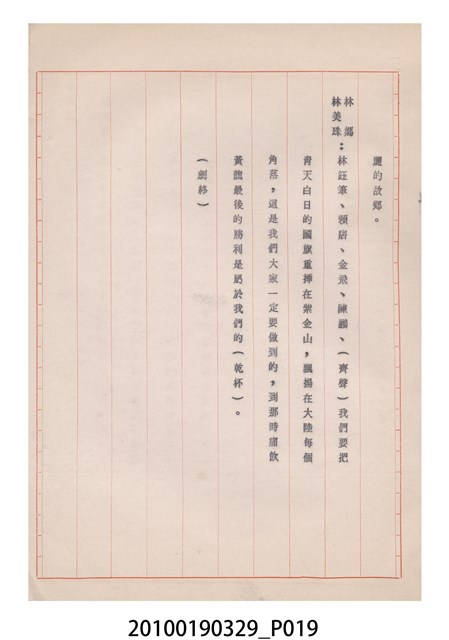 麗的故鄉。
林嫣
林美珠：林鈺筆、預唐、金飛、陳麟、（齊聲）我們要把
青天白日的國旗重揮在紫金山，飄揚在大陸每個
角落，這是我們大家一定要做到的，到那時痛飲
黃龍最後的勝利是屬於我們的（乾杯）。
（劇終）
20100190329_P019